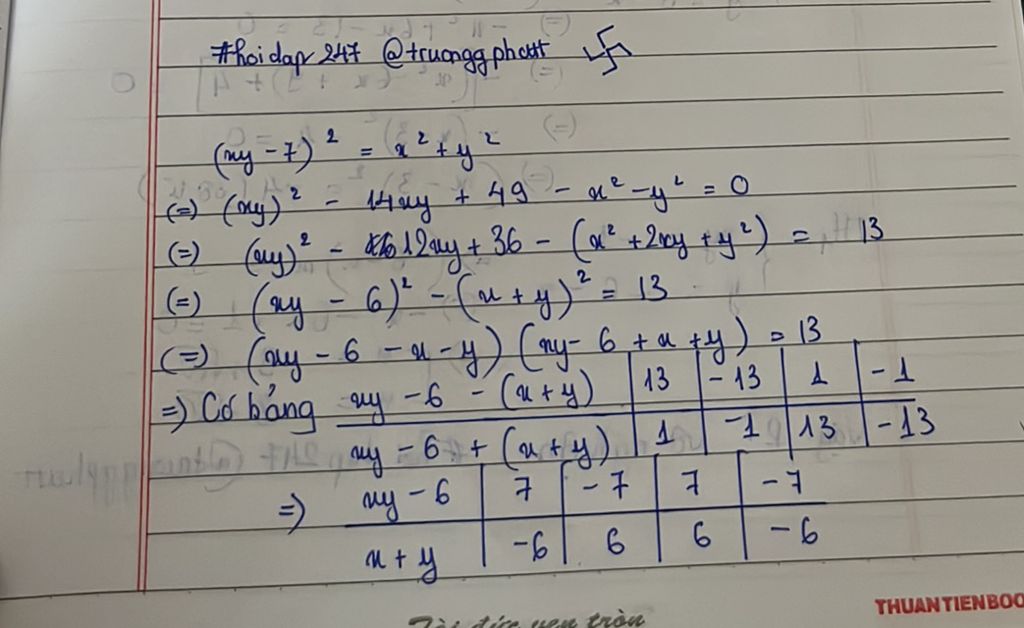 #hoidap247 @truonggphatt 卐
(xy - 7)² = x² + y²
(=) (xy)² - 14xy + 49 - x² - y² = 0
(=) (xy)² - 12xy + 36 - (x² + 2xy + y²) = 13
(=) (xy - 6)² - (x + y)² = 13
(=) (xy - 6 - x - y) (xy - 6 + x + y) = 13
=) Có bảng xy - 6 - (x + y) | 13 | - 13 | 1 | - 1
xy - 6 + (x + y) | 1 | -1 | 13 | - 13
=) xy - 6 | 7 | - 7 | 7 | - 7
x + y | -6 | 6 | 6 | - 6
THUAN TIEN BOO